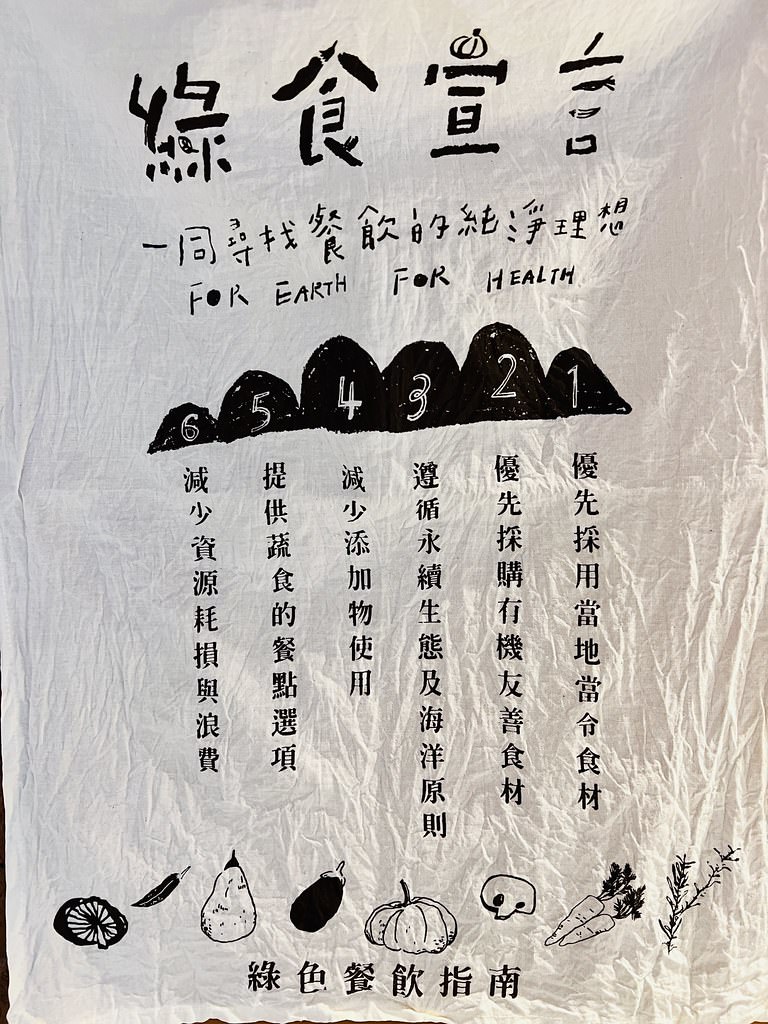 綠食宣言
一同尋找餐飲的純淨理想
FOR EARTH FOR HEALTH
1
優先採用當地當令食材
2
優先採購有機友善食材
3
遵循永續生態及海洋原則
4
減少添加物使用
5
提供蔬食的餐點選項
6
減少資源耗損與浪費
綠色餐飲指南